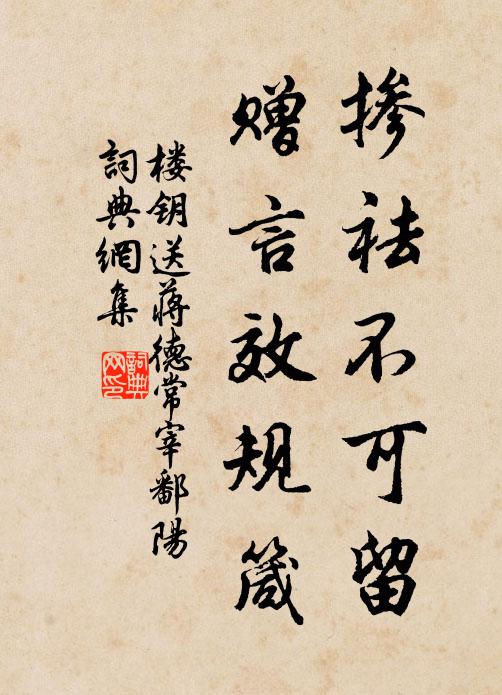 掺祛不可留
赠言效规箴
楼钥送蒋德常宰鄱陽
詞典網集
詞典网印